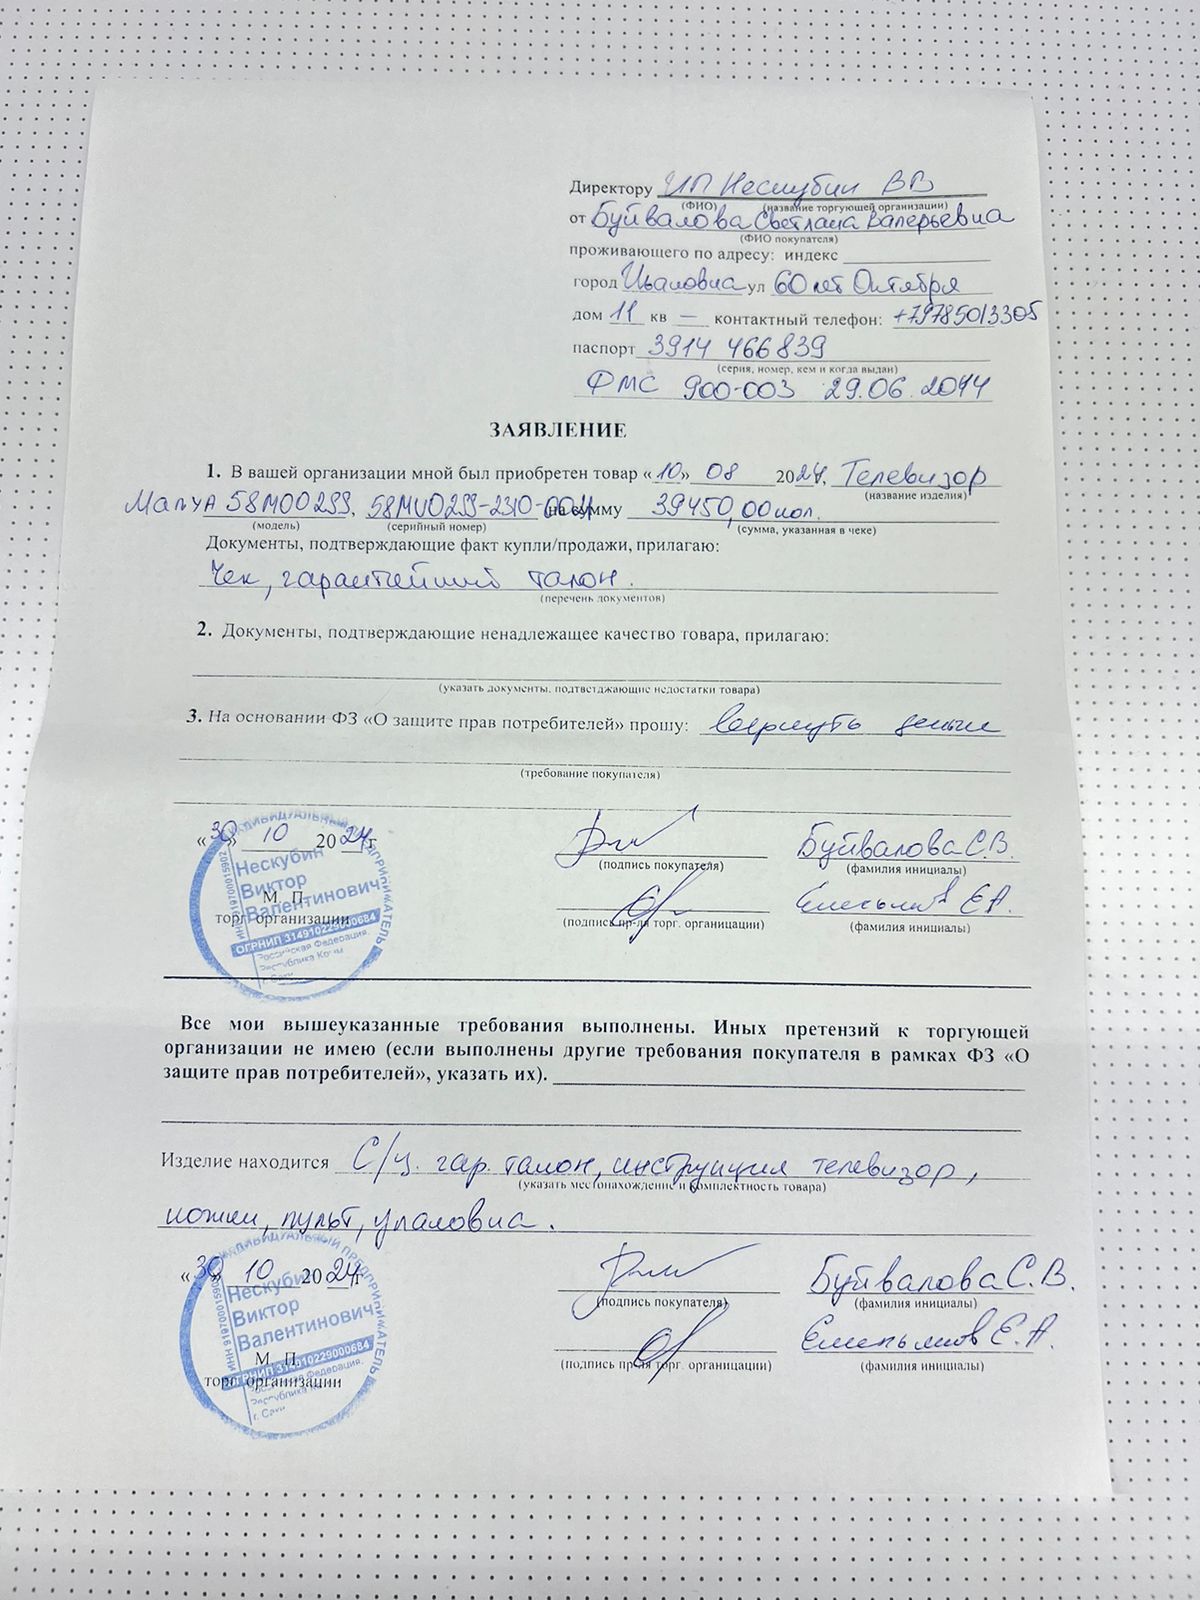 Директору ИП Нескубин ВВ
(ФИО) (название торгующей организации)
от Буйвалова Светлана Валерьевна
(ФИО покупателя)
проживающего по адресу: индекс
город Ивановка ул 60 лет Октября
дом 11 кв — контактный телефон: +79785013305
паспорт 3914 466839
(серия, номер, кем и когда выдан)
ФМС 900-003 29.06.2014
ЗАЯВЛЕНИЕ
1. В вашей организации мной был приобретен товар «10» 08 2024, Телевизор
(название изделия)
58M00299, 58MU0299-2310-0011 на сумму 39450,00коп.
(модель) (серийный номер) (сумма, указанная в чеке)
Документы, подтверждающие факт купли/продажи, прилагаю:
Чек, гарантейний талон.
(перечень документов)
2. Документы, подтверждающие ненадлежащее качество товара, прилагаю:
(указать документы, подтверждающие недостатки товара)
3. На основании ФЗ «О защите прав потребителей» прошу: вернуть деньги
(требование покупателя)
«30» 10 2024г
(подпись покупателя) Буйвалова С.В.
(фамилия инициалы)
М П
торг. организации
(подпись пр-ля торг. органицации) Емельянов Е.А.
(фамилия инициалы)
ИНДИВИДУАЛЬНЫЙ ПРЕДПРИНИМАТЕЛЬ
Нескубин
Виктор
Валентинович
ОГРНИП 314910229000684
Российская Федерация,
Республика Крым
г. Саки
Все мои вышеуказанные требования выполнены. Иных претензий к торгующей
организации не имею (если выполнены другие требования покупателя в рамках ФЗ «О
защите прав потребителей», указать их).
Изделие находится С/ц. гар. талон, инструкция телевизор,
(указать местонахождение и комплектность товара)
ножки, пульт, упаковка.
«30» 10 2024г
(подпись покупателя) Буйвалова С.В.
(фамилия инициалы)
М. П.
торг. организации
(подпись пр-ля торг. органицации) Емельянов Е.А.
(фамилия инициалы)
ИНДИВИДУАЛЬНЫЙ ПРЕДПРИНИМАТЕЛЬ
Нескубин
Виктор
Валентинович
ОГРНИП 314910229000684
Российская Федерация,
Республика
г. Саки